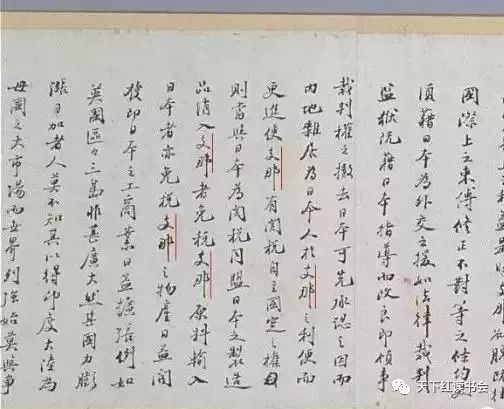 支那
國際上之束縛修正不對等之條約
須藉日本為外交之援如法律裁判
監獄既藉日本指導而改良即領事
裁判權之撤去日本可先承認之因而
内地雜居為日本人於支那之利便而
更進使支那有関税自主國定之權
則當與日本為関税同盟日本之製造
品消入支那者免税支那原料輸入
日本者亦免税支那之物産日益開
發即日本之工商業日益擴張例如
英國區々三島非甚廣大然其國力膨
漲日加者人莫不知其以得印度大陸為
母國之大市場而世界列強始莫與爭
天下红读书会